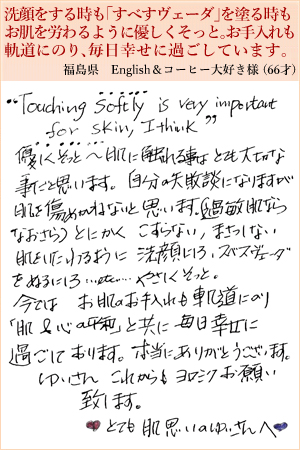 洗顔をする時も「すべすヴェーダ」を塗る時も
お肌を労わるように優しくそっと。お手入れも
軌道にのり、毎日幸せに過ごしています。
福島県　English＆コーヒー大好き様（66才）
"Touching softly is very important
for skin, I think"
優しくそっと〜肌に触れる事は とても大切な
事だと思います。自分の失敗談になりますが
肌を傷めかねないと思います。（過敏肌なら
なおさら）とにかく こすらない、まさつしない
肌をいたわるように 洗顔にしろ、スベスヴェーダ
をぬるにしろ…etc… やさしくそっと。
今では お肌のお手入れも 軌道にのり
「肌&心の平和」と共に 毎日 幸せに
過ごしております。本当にありがとうございます。
ゆいさん これからも ヨロシク お願い
致します。
とても 肌思いのゆいさんへ